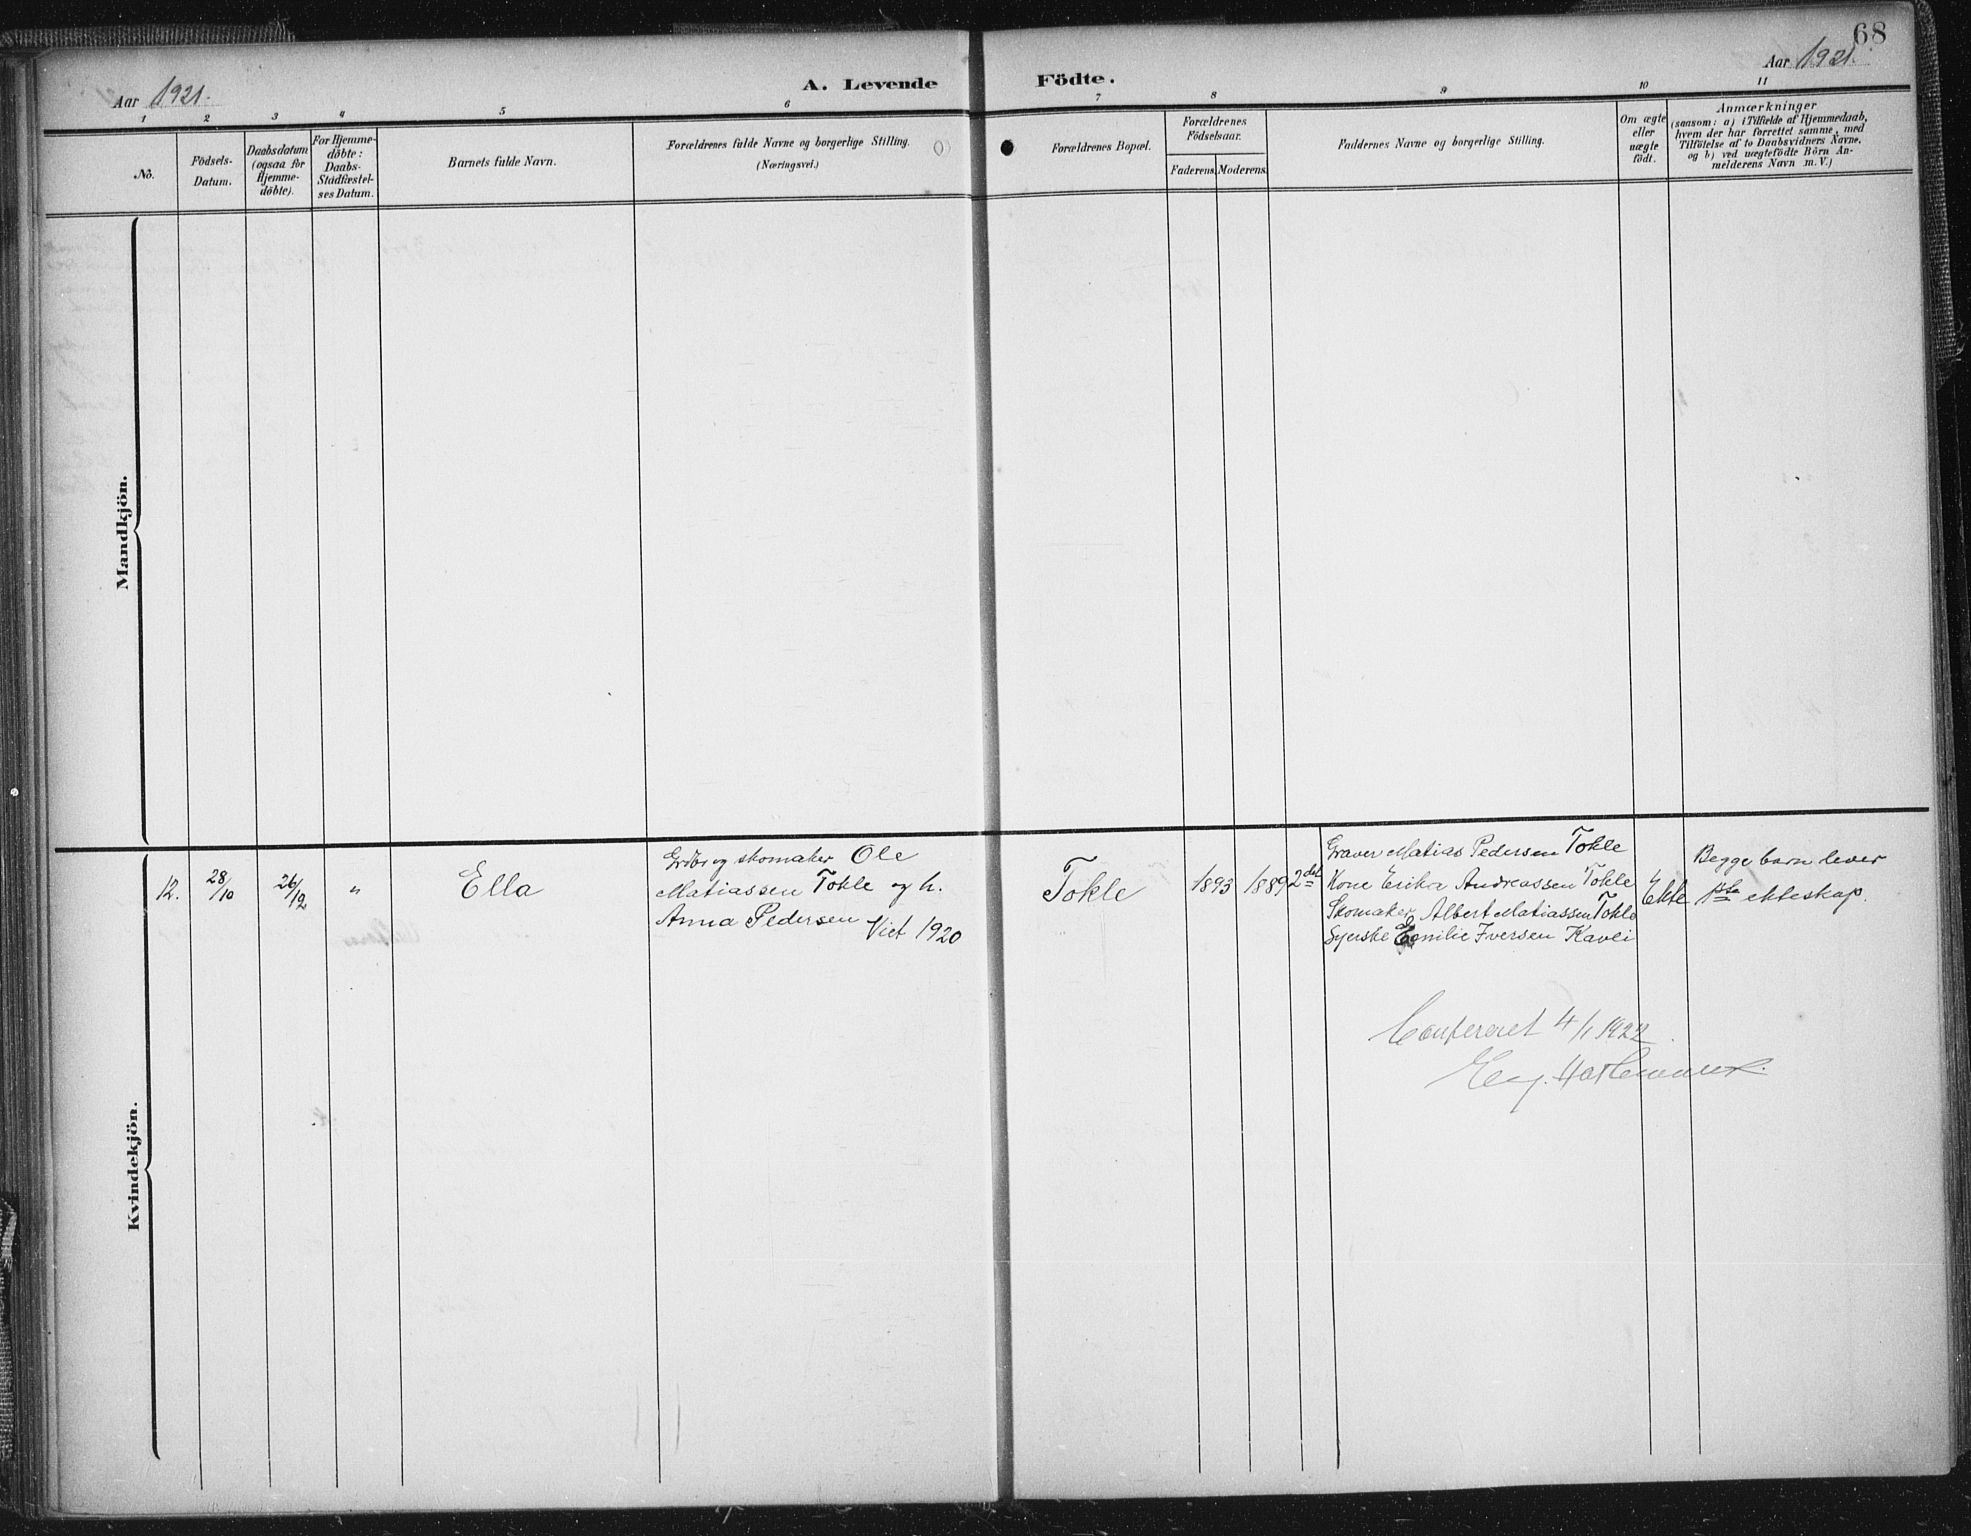 68
Aar 1921.
A. Levende Födte.
Aar 1921.
1 2 3 4 5 6 7 8 9 10 11
No.
Födsels-
Datum.
Daabsdatum
(ogsaa for
Hjemme-
döbte).
For Hjemme-
döbte:
Daabs-
Stadfæstel-
ses Datum.
Barnets fulde Navn.
Forældrenes fulde Navne og borgerlige Stilling.
(Næringsvei.)
Forældrenes Bopæl.
Forældrenes
Födselsaar.
Faderens. Moderens.
Faddernes Navne og borgerlige Stilling.
Om ægte
eller
uægte
födt.
Anmærkninger
(saasom: a) i Tilfælde af Hjemmedaab,
hvem der har forrettet samme, med
Tilföielse af to Daabsvidners Navne,
og b) ved uægtefödte Börn An-
melderens Navn m. V.)
Mandkjön.
Kvindekjön.
12.
28/10
26/12
"
Ella
Grdbr og skomaker Ole
Matiassen Tokle og h.
Anna Pedersen Viet 1920
Tokle
1893
1889
2det
Graver Matias Pedersen Tokle
Kone Erika Andreassen Tokle
Skomaker Albert Matiassen Tokle
Syerske Emilie Iversen Kavli
Ekte
Begge barn lever
1ste ekteskap.
Confereret 4/1 1922.